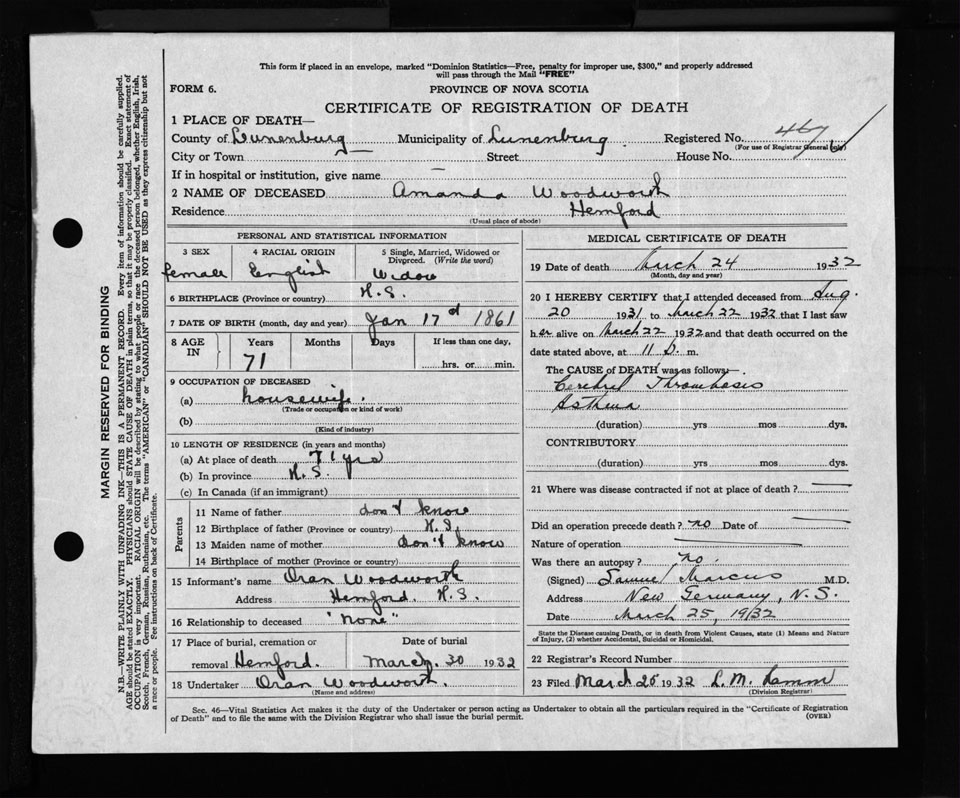 This form if placed in an envelope, marked "Dominion Statistics—Free, penalty for improper use, $300," and properly addressed
will pass through the Mail "FREE"
FORM 6. PROVINCE OF NOVA SCOTIA
CERTIFICATE OF REGISTRATION OF DEATH
1 PLACE OF DEATH—
County of Lunenburg Municipality of Lunenburg Registered No.
(For use of Registrar General only)
City or Town Street House No.
If in hospital or institution, give name —
2 NAME OF DECEASED Amanda Woodworth
Residence Hemford
(Usual place of abode)
PERSONAL AND STATISTICAL INFORMATION
3 SEX 4 RACIAL ORIGIN 5 Single, Married, Widowed or Divorced. (Write the word)
female English Widow
6 BIRTHPLACE (Province or country) N.S.
7 DATE OF BIRTH (month, day and year) Jan 17 d 1861
8 AGE IN Years Months Days If less than one day,
71 hrs. or min.
9 OCCUPATION OF DECEASED
(a) housewife.
(Trade or occupation or kind of work)
(b)
(Kind of industry)
10 LENGTH OF RESIDENCE (in years and months)
(a) At place of death 71 yrs
(b) In province N.S.
(c) In Canada (if an immigrant)
Parents
11 Name of father don't know
12 Birthplace of father (Province or country) N.S.
13 Maiden name of mother don't know
14 Birthplace of mother (Province or country)
15 Informant's name Oran Woodworth
Address Hemford. N.S.
16 Relationship to deceased "None"
17 Place of burial, cremation or Date of burial
removal Hemford. March. 30 1932
18 Undertaker Oran Woodworth.
(Name and address)
MEDICAL CERTIFICATE OF DEATH
19 Date of death March 24 1932
(Month, day and year)
20 I HEREBY CERTIFY that I attended deceased from Aug.
20 1931 to March 22 1932 that I last saw
her alive on March 22 1932 and that death occurred on
date stated above, at 11 p. m.
The CAUSE of DEATH was as follows:—
Cerebral Thrombosis
Asthma
(duration) yrs mos dys.
CONTRIBUTORY
(duration) yrs mos dys.
21 Where was disease contracted if not at place of death? —
Did an operation precede death? no Date of —
Nature of operation —
Was there an autopsy? no.
(Signed) Samuel Marcus M.D.
Address New Germany, N.S.
Date March 25, 1932
State the Disease causing Death, or in death from Violent Causes, state (1) Means and Nature
of Injury, (2) whether Accidental, Suicidal or Homicidal.
22 Registrar's Record Number
23 Filed March 25 1932 L. M. Lamm
(Division Registrar)
Sec. 46—Vital Statistics Act makes it the duty of the Undertaker or person acting as Undertaker to obtain all the particulars required in the "Certificate of Registration
of Death" and to file the same with the Division Registrar who shall issue the burial permit. (OVER)
MARGIN RESERVED FOR BINDING
N.B.—WRITE PLAINLY WITH UNFADING INK—THIS IS A PERMANENT RECORD. Every item of information should be carefully supplied.
AGE should be stated EXACTLY. PHYSICIANS should STATE CAUSE OF DEATH in plain terms, so that it may be properly classified. Exact statement of
OCCUPATION is very important. RACIAL ORIGIN will be described by stating to what people or race the deceased person belonged, whether English, Irish,
Scotch, French, German, Russian, Ruthenian, etc. The terms "AMERICAN" or "CANADIAN" SHOULD NOT BE USED as they express citizenship but not
a race or people. Fee instructions on back of Certificate.